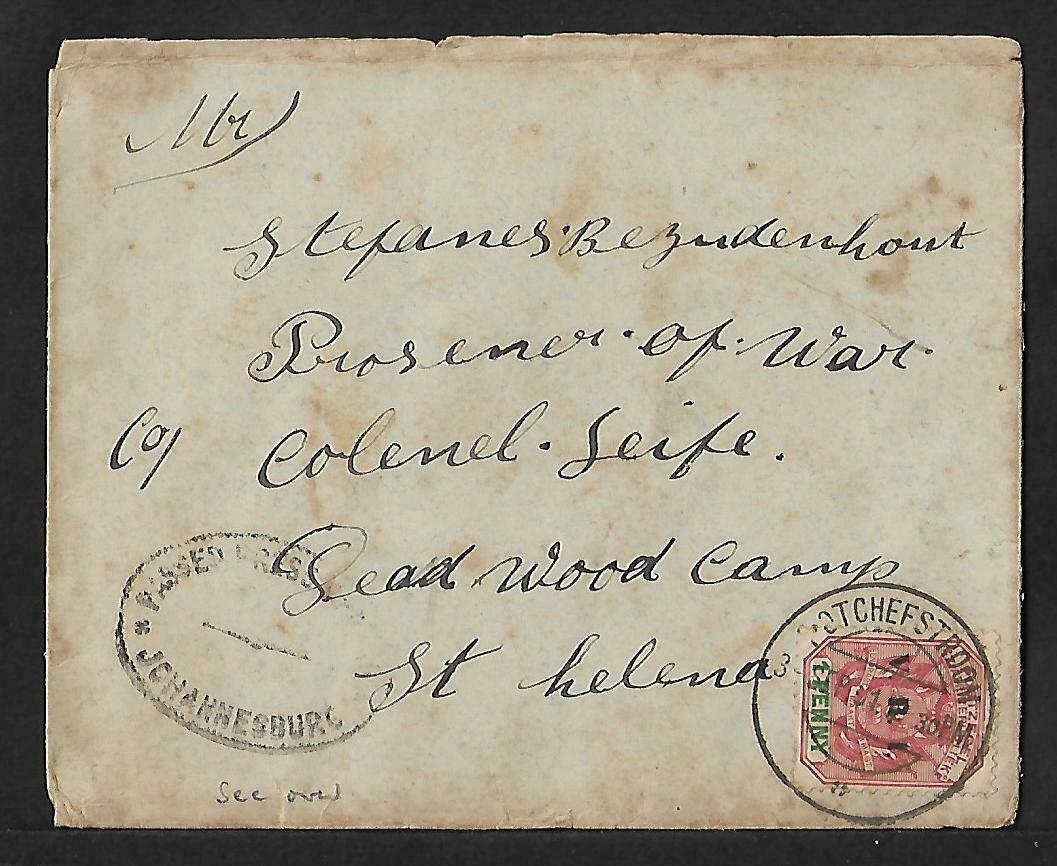 Mr
Stefanes Bezudenhout
Prosener. of. War.
C/o Colenel. Leife.
Dead Wood Camp
St helena
PASSED PRESS
* JOHANNESBURG
POTCHEFSTROOM
V. R. I.
1 PENNY
See over